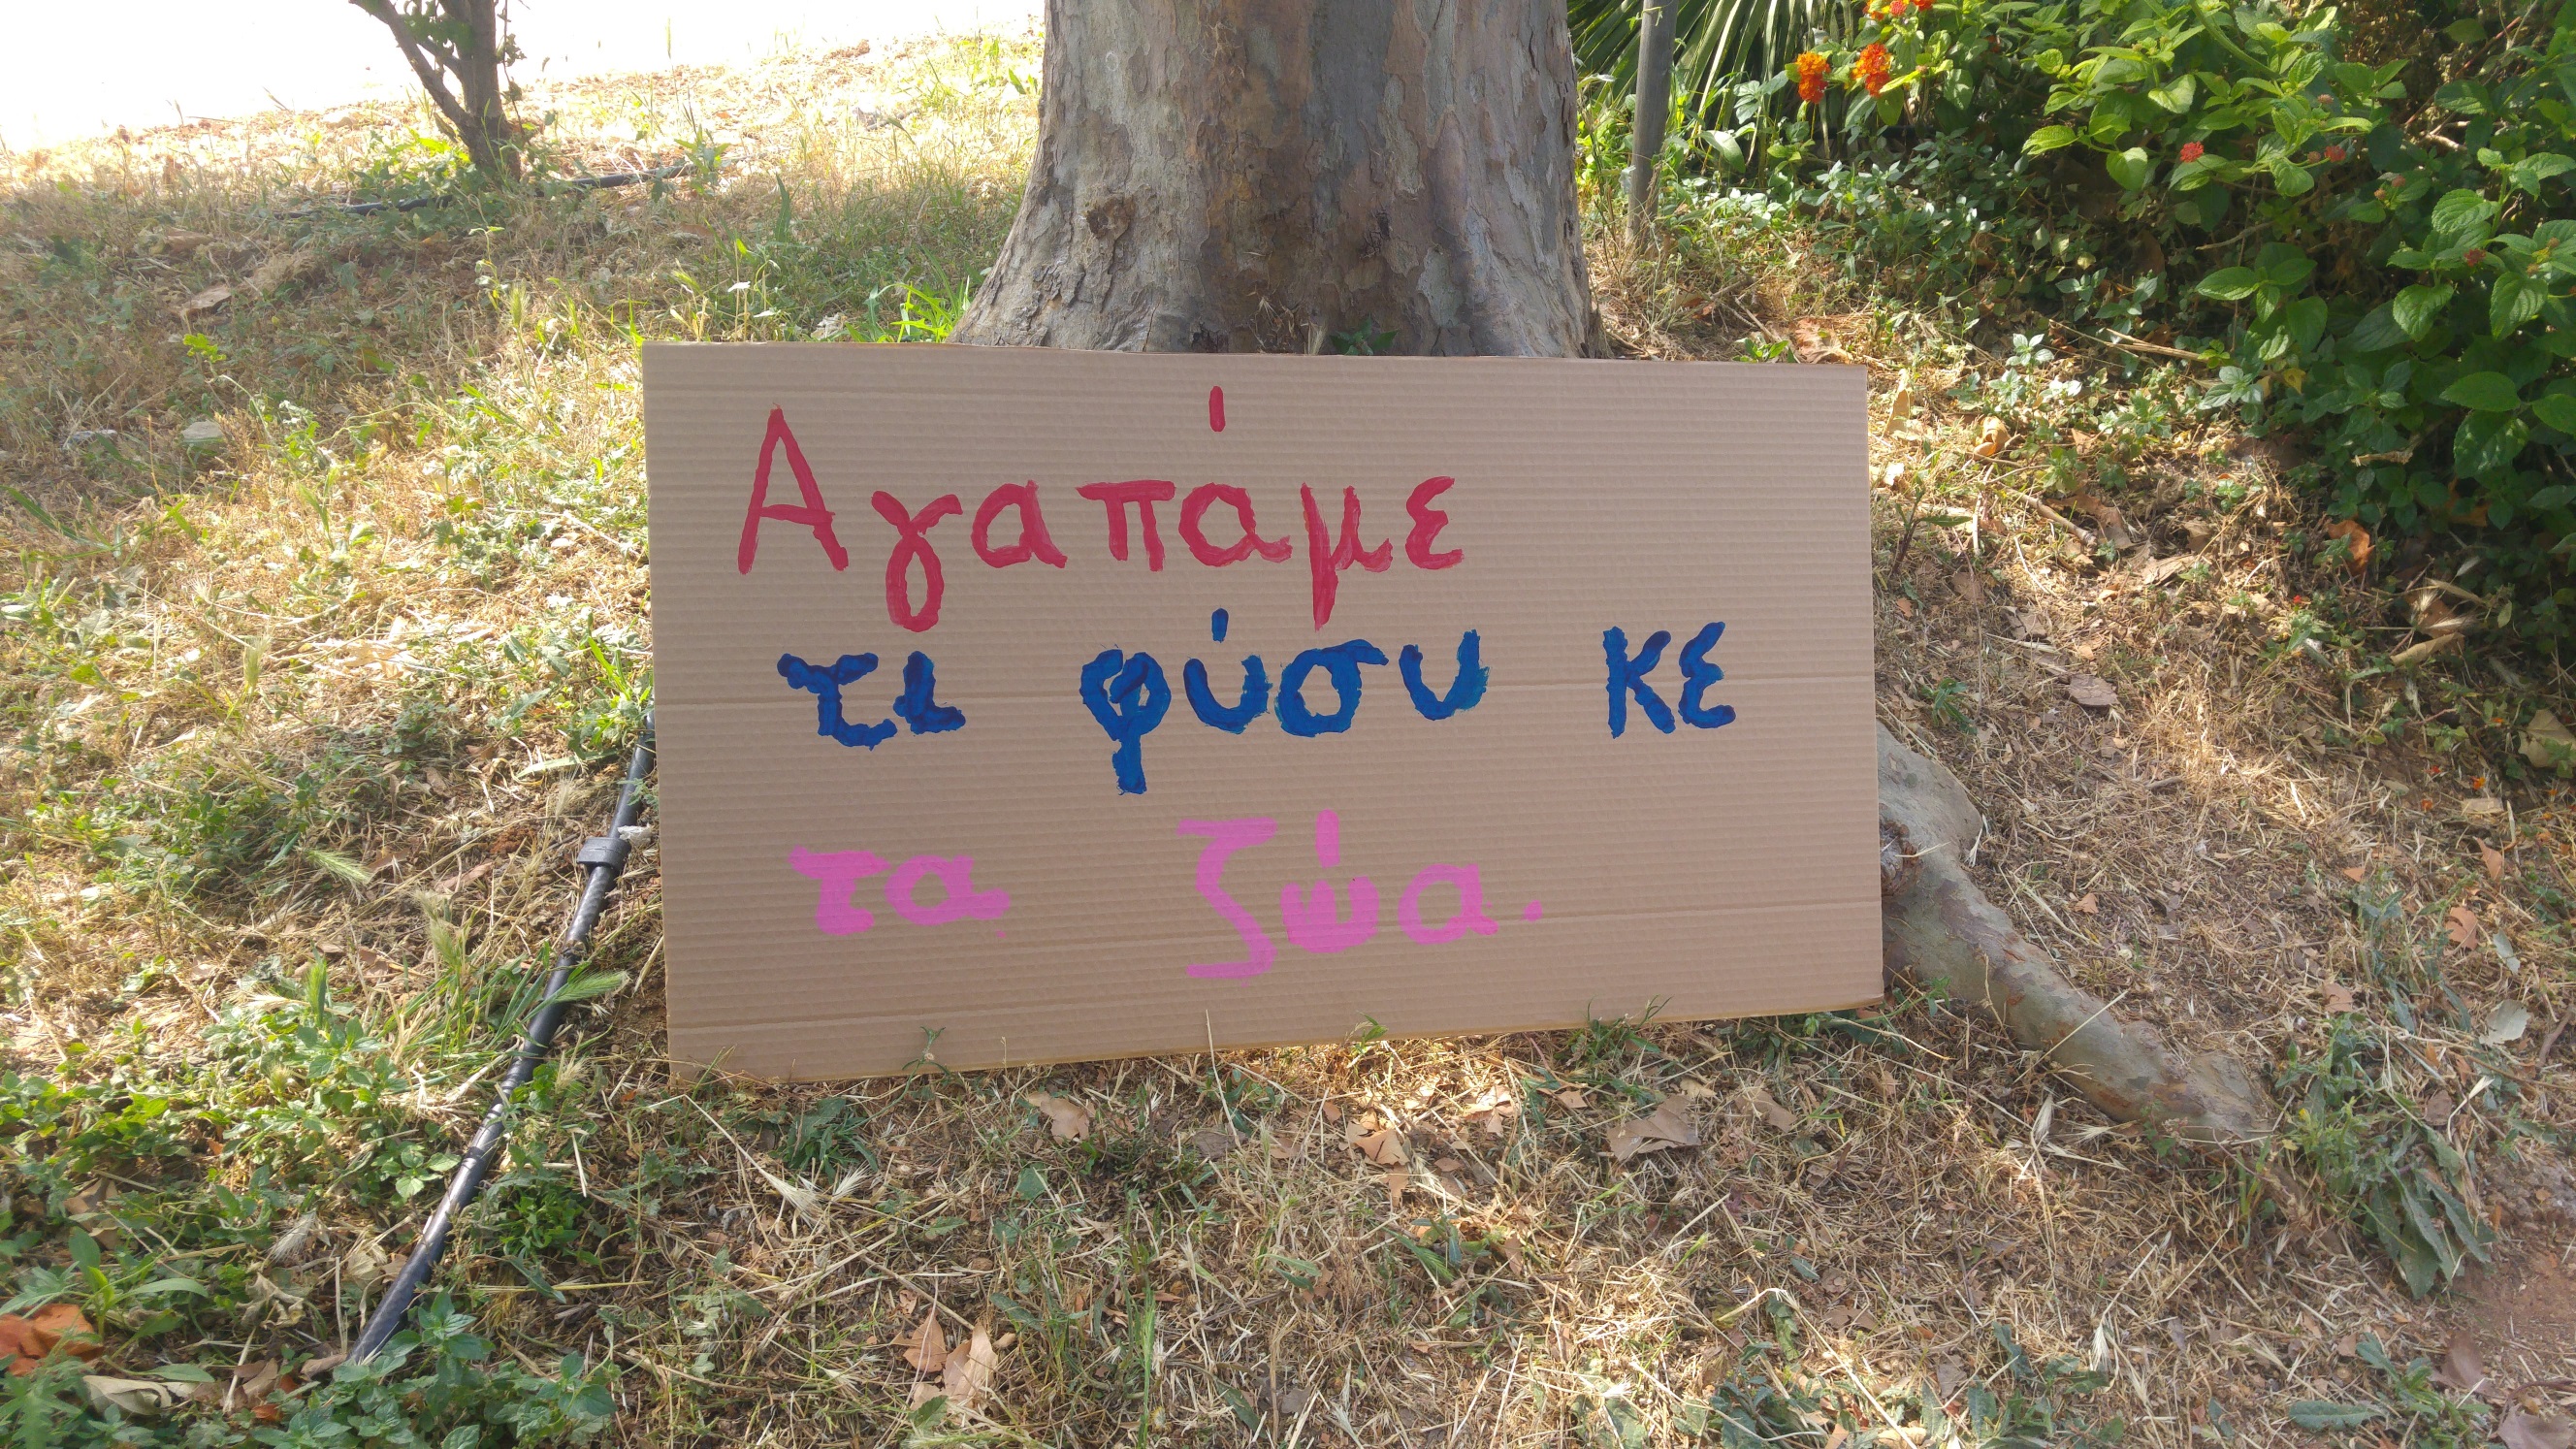 Αγαπάμε
τι φύσυ κε
τα ζώα.